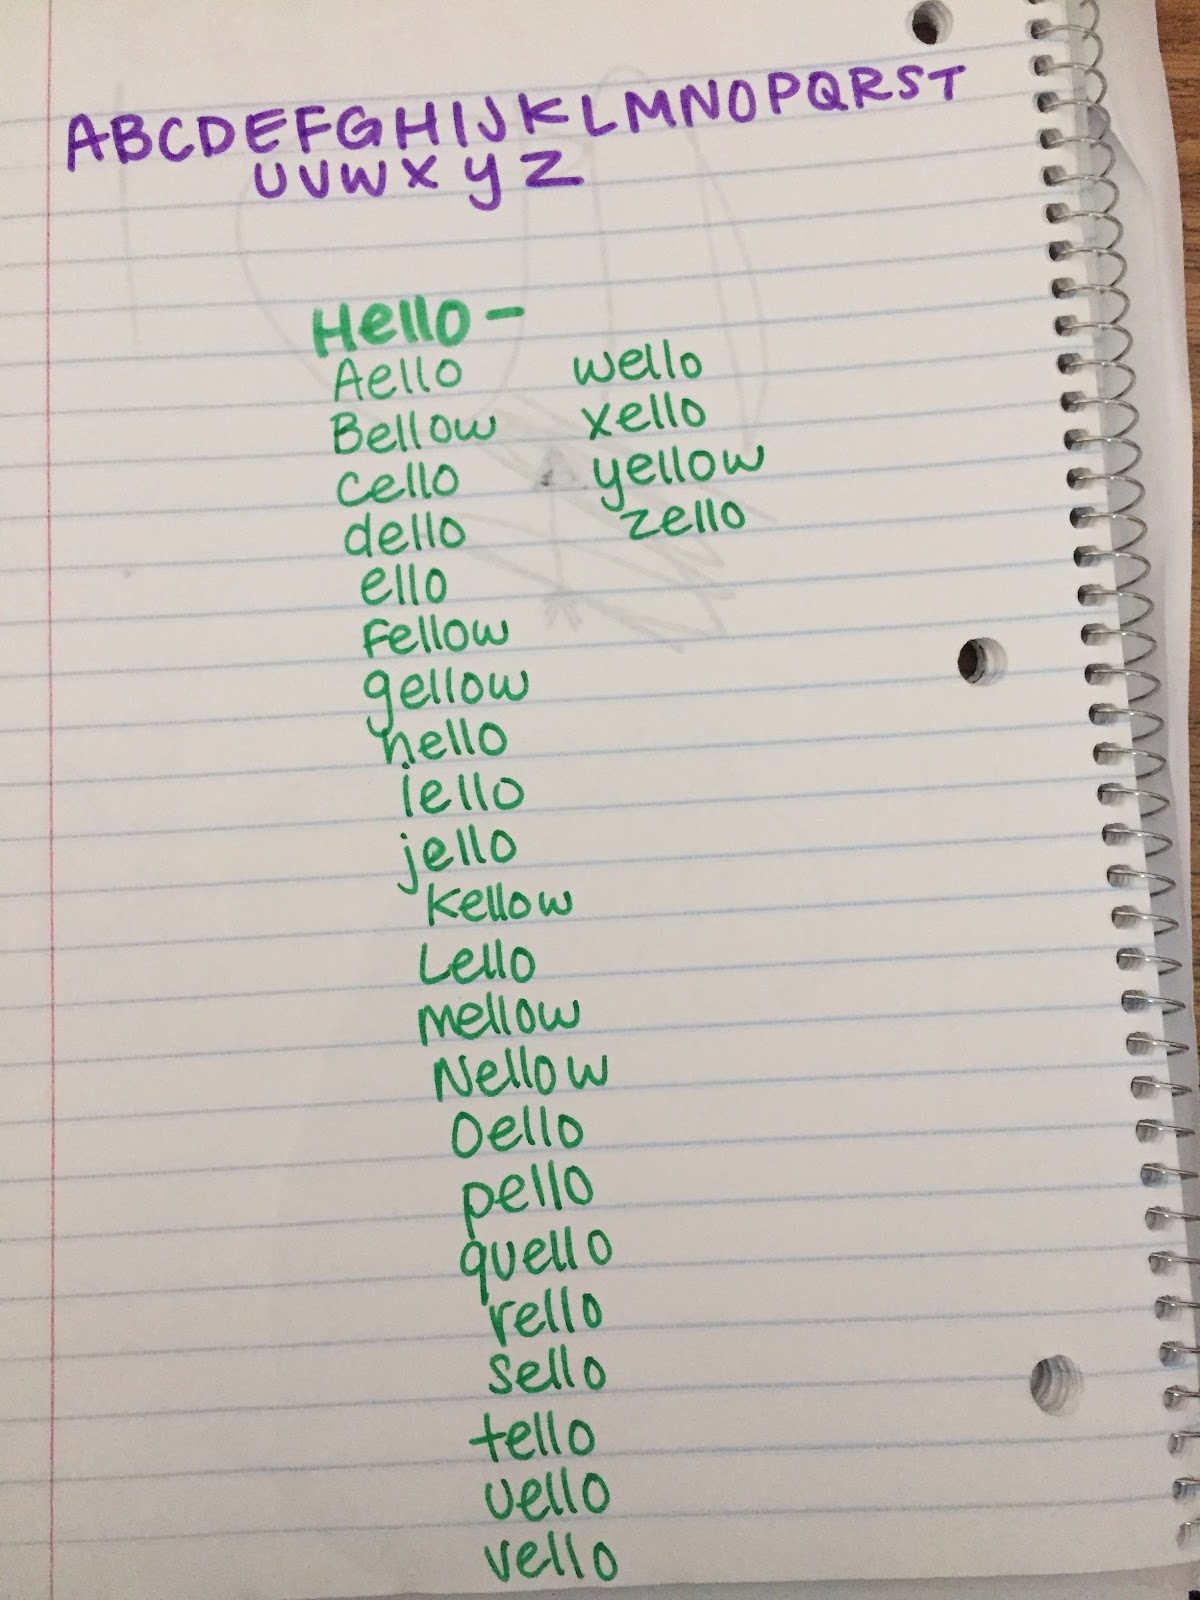 ABCDEFGHIJKLMNOPQRST
UVWXYZ
Hello -
Aello
Bellow
cello
dello
ello
Fellow
gellow
hello
iello
jello
Kellow
Lello
mellow
Nellow
Oello
pello
quello
rello
sello
tello
uello
vello
wello
xello
yellow
zello